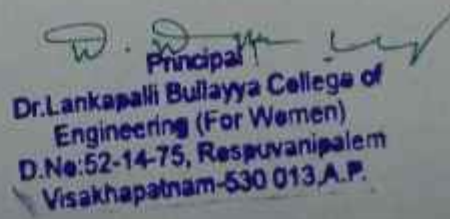 Principal
Dr.Lankapalli Bullayya College of
Engineering (For Women)
D.No:52-14-75, Respuvanipalem
Visakhapatnam-530 013,A.P.